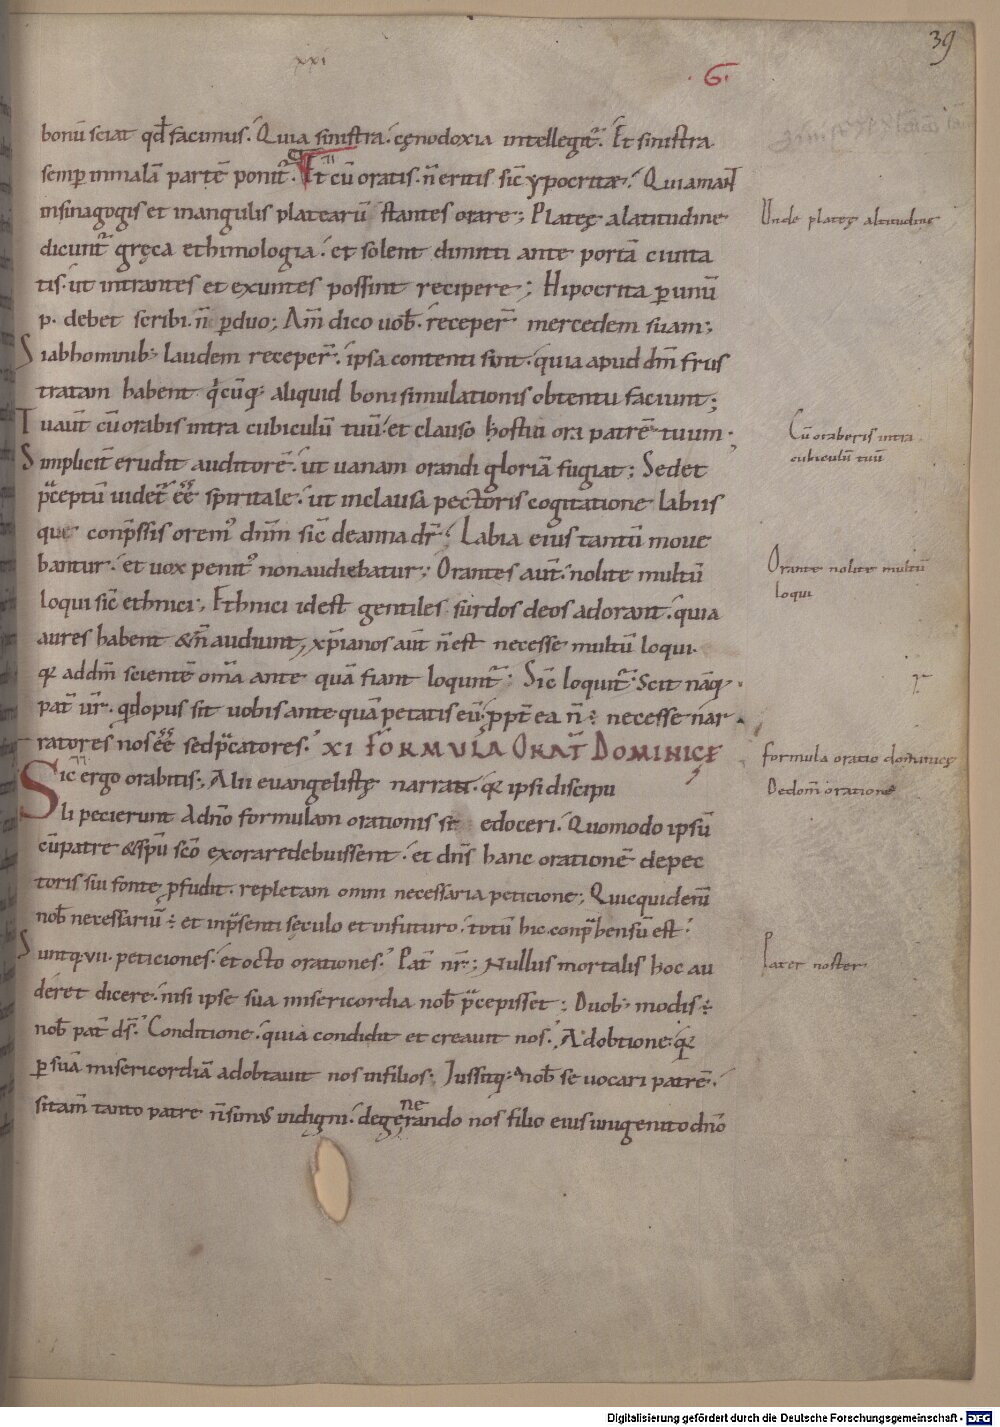 39
xxi
·6·
bonū sciat qđ facimus. Quia sinistra. cęnodoxia intellegit᷑. Et sinistra
semp̱ in malā partē ponit᷑. Et cū oratis. n̄ eritis sic̄ ypocritæ. Quia mant̄
in sinagogis et in angulis platearū stantes orare; Plateę a latitudine
dicunt᷑ gręca ethimologia. et solent dimitti ante portā ciuita
tis. ut intrantes et exuntes possint recipere; Hipocrita p̱ unū
p. debet scribi. n̄ p̱ duo; Am̄ dico uob̄. receper̄ mercedem suam;
Si ab hominib; laudem receper̄. ipsa contenti sint. quia apud dm̄ frus
tratam habent q̇cūq; aliquid boni simulationis obtentu faciunt;
Tu aut̄ cū orabis intra cubiculū tuū. et clauso hostiu ora patrē tuum;
Simplicit̄ erudit auditorē. ut uanam orandi gloriā fugiat; Sed et
p̄ceptū uidet᷑ eē spiritale. ut inclausa pectoris cogitatione labiis
que conp̄ssis orem᷒ dnm̄ sic̄ de anna dr̄. Labia eius tantū moue
bantur. et uox penit᷒ non audiebatur; Orantes aut̄. nolite multū
loqui sic̄ ethnici; Ethnici id est gentiles surdos deos adorant. quia
aures habent & n̄ audiunt, xp̄ianos aut̄ n̄ est necesse multū loqui.
q̱ ad dm̄ scientē om̄a ante quā fiant loqunt᷑; Sic̄ loquit᷑. Scit nāq;
pat̄ ur̄. qd opus sit uobis ante quā petatis eū. ppt̄ ea n̄ necesse nar
ratores nos eē sed p̄catores. XI FORMULA ORAT̄ DOMINICĘ
Sic ergo orabitis; Alii euangelistę narrant. q̱ ipsi discipu
li pecierunt a dn̄o formulam orationis se edoceri. Quomodo ipsū
cū patre & sp̄u sc̄o exorare debuissent. et dn̄s hanc orationē de pec
toris sui fonte p̱fudit. repletam omni necessaria peticione; Quicquid enī
nob̄ necessariū et in p̄senti sęculo et in futuro. totū hic conp̄hensū est.
Suntq; vii. peticiones. et octo orationes. Pat̄ nr̄; Nullus mortalis hoc au
deret dicere. nisi ipse sua misericordia nob̄ p̄cepisset; Duob; modis
nob̄ pat̄ ds̄. Conditione. quia condidit et creauit nos. Adobtione. q̱
p̱ suā misericordiā adobtauit nos in filios; Iussitq; nob̄ se uocari patrē.
si tam̄ tanto patre n̄ simus indigni. degenerando nos filio eius unigenito dn̄o
Unde plateę a latitudine
Cū oraberis intra
cubiculū tuū
Orante nolite multū
loqui
formula oratio dominicę
De dom̄ oratione
Pater noster
Digitalisierung gefördert durch die Deutsche Forschungsgemeinschaft - DFG